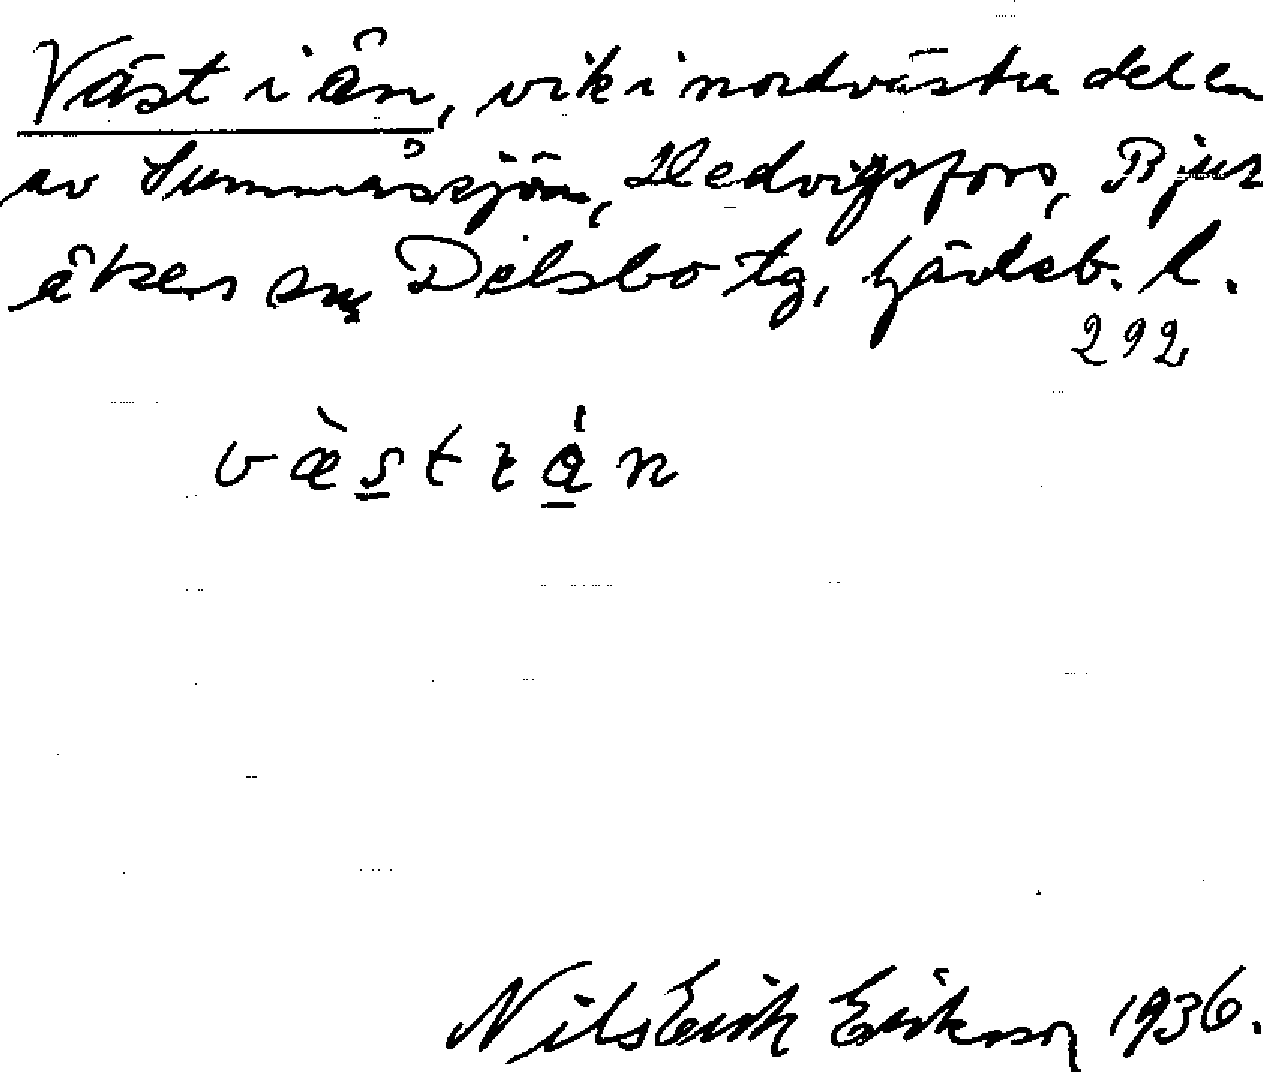 Väst i ån, vik i nordvästra delen
av Summåssjön, Hedvigsfors, Bjur
åkers sn, Delsbo tg, Gävleb. l.
292
v æ̀ s t ɩ ǻ n
Nils Erik Erikson 1936.